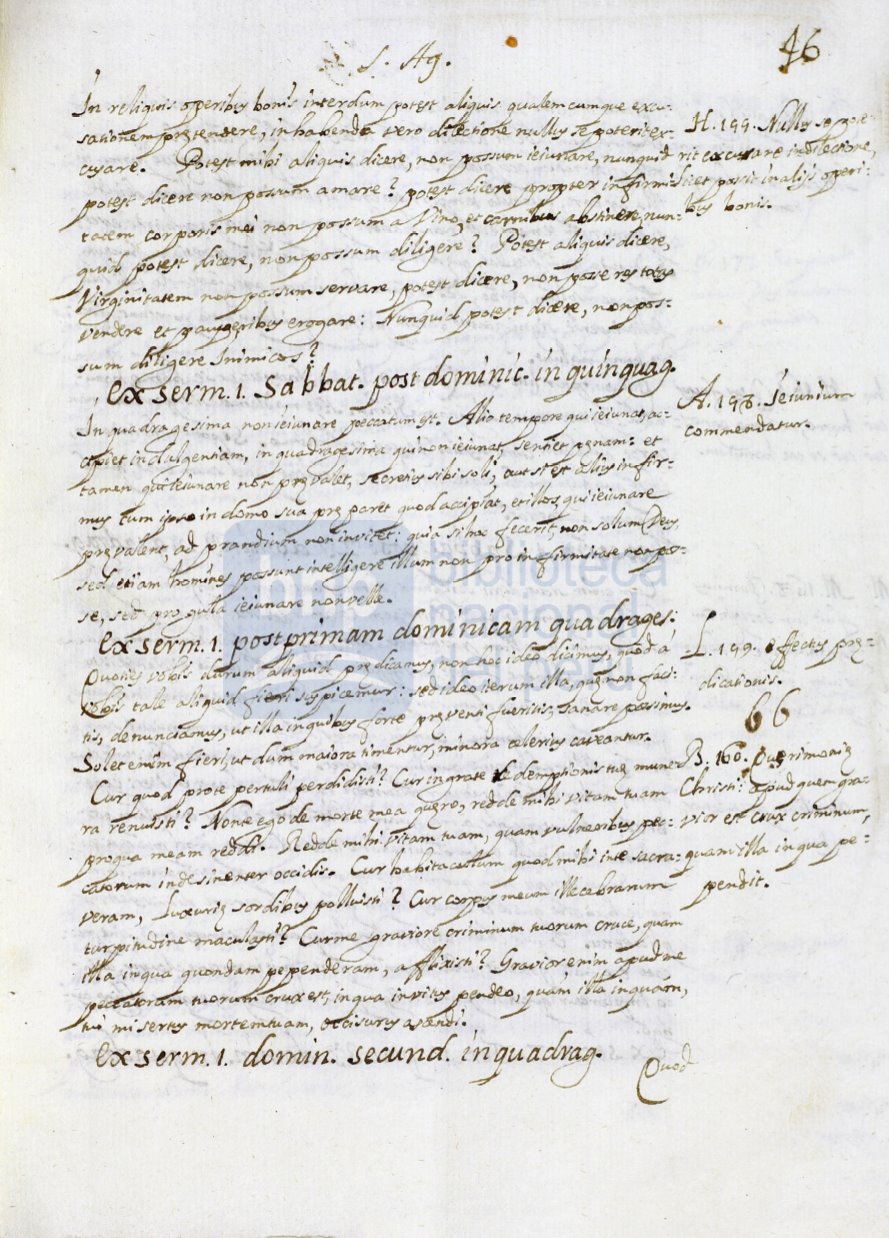 S. Ag.
46
In reliquis operibus bonis interdum potest aliquis qualemcumque excu-
sationem prętendere, in habenda vero dilectione nullus se poterit ex-
cusare. Potest mihi aliquis dicere, non possum ieiunare, nunquid
potest dicere non possum amare? potest dicere propter infirmi-
tatem corporis mei non possum a Vino, et carnibus abstinere, nun-
quid potest dicere, non possum diligere? Potest aliquis dicere,
Virginitatem non possum servare, potest dicere, non posse res totas
vendere et pauperibus erogare: Nunquid potest dicere, non pos-
sum diligere Inimicos?
H. 199. Nullus se pote-
rit excusare in dilectione,
licet possit in alijs operi-
bus bonis.
Ex serm. 1. Sabbat. post dominic. in quinquag.
In quadragesima non ieiunare peccatum est. Alio tempore qui ieiunat, ac-
cipiet indulgentiam, in quadragesima qui non ieiunat, sentiet pęnam: et
tamen qui ieiunare non pręvalet, secretius sibi soli, aut si est alius infir-
mus cum ipso in domo sua pręparet quod accipiat, et illos, qui ieiunare
pręvalent, ad prandium non invitet: quia si hoc fecerit, non solum Deus,
sed etiam homines possunt intelligere illum non pro infirmitate non pos-
se, sed pro gula ieiunare non velle.
A. 198. Ieiunium
commendatur.
Ex serm. 1. post primam dominicam quadrages.
Quoties vobis durum aliquid prędicamus, non hoc ideo dicimus, quod á
vobis tale aliquid fieri suspicemur: sed ideo iterum illa, quę non faci-
tis, denunciamus, ut illa in quibus forte pręventi fueritis, sanare possimus.
Solet enim fieri, ut dum maiora timentur, minora celerius caveantur.
L. 199. effectus prę-
dicationis.
66
Cur quod pro te pertuli perdidisti? Cur ingrate redemptionis tuę mune-
ra renuisti? Non te ego de morte mea quęro, redde mihi vitam tuam
pro qua meam reddi. Redde mihi vitam tuam, quam vulneribus pec-
catorum indesinenter occidis. Cur habitaculum quod mihi in te sacra-
veram, luxurię sordibus polluisti? Cur corpus meum illecebrarum
turpitudine maculasti? Cur me graviore criminum tuorum cruce, quam
illa in qua quondam pependeram, afflixisti? Gravior enim apud me
peccatorum tuorum crux est, in qua invitus pendeo, quam illa in quam,
tui misertus mortem tuam, occisurus ascendi.
B. 160. Querimonię
Christi: apud quem gra-
vior est crux criminum,
quam illa in qua pe-
pendit.
Ex serm. 1. domin. secund. in quadrag.
Quod
biblioteca
nacional
del perú